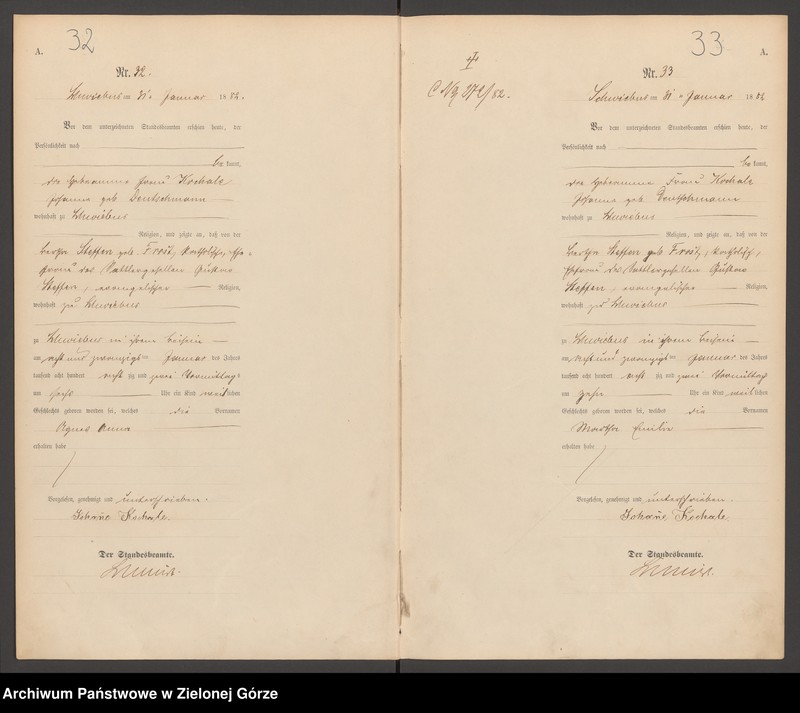 A.
32
Nr. 32.
Schwiebus am 31. Januar 1882.
Vor dem unterzeichneten Standesbeamten erschien heute, der
Persönlichkeit nach
be kannt,
die Hebeamme Frau Kochale
Johanne geb Deutschmann
wohnhaft zu Schwiebus
Religion, und zeigte an, daß von der
Bertha Steffen geb Frost, katholische, Ehe-
frau des Sattlergesellen Gustav
Steffen, evangelischer Religion,
wohnhaft zu Schwiebus
zu Schwiebus in ihrem Beisein
am acht und zwanzigsten Januar des Jahres
tausend acht hundert achtzig und zwei Vormittags
um sechs Uhr ein Kind weiblichen
Geschlechts geboren worden sei, welches die Vornamen
Agnes Anna
erhalten habe
Vorgelesen, genehmigt und unterschrieben.
Johanne Kochale.
Der Standesbeamte.
C No 172/82.
33
A.
Nr. 33
Schwiebus am 31. Januar 1882
Vor dem unterzeichneten Standesbeamten erschien heute, der
Persönlichkeit nach
be kannt,
die Hebeamme Frau Kochale
Johanne geb Deutschmann
wohnhaft zu Schwiebus
Religion, und zeigte an, daß von der
Bertha Steffen geb Frost, katholisch,
Ehefrau des Sattlergesellen Gustav
Steffen, evangelischer Religion,
wohnhaft zu Schwiebus
zu Schwiebus in ihrem Beisein
am acht und zwanzigsten Januar des Jahres
tausend acht hundert achtzig und zwei Vormittags
um zehn Uhr ein Kind weiblichen
Geschlechts geboren worden sei, welches die Vornamen
Martha Emilie
erhalten habe
Vorgelesen, genehmigt und unterschrieben.
Johanne Kochale
Der Standesbeamte.
Archiwum Państwowe w Zielonej Górze